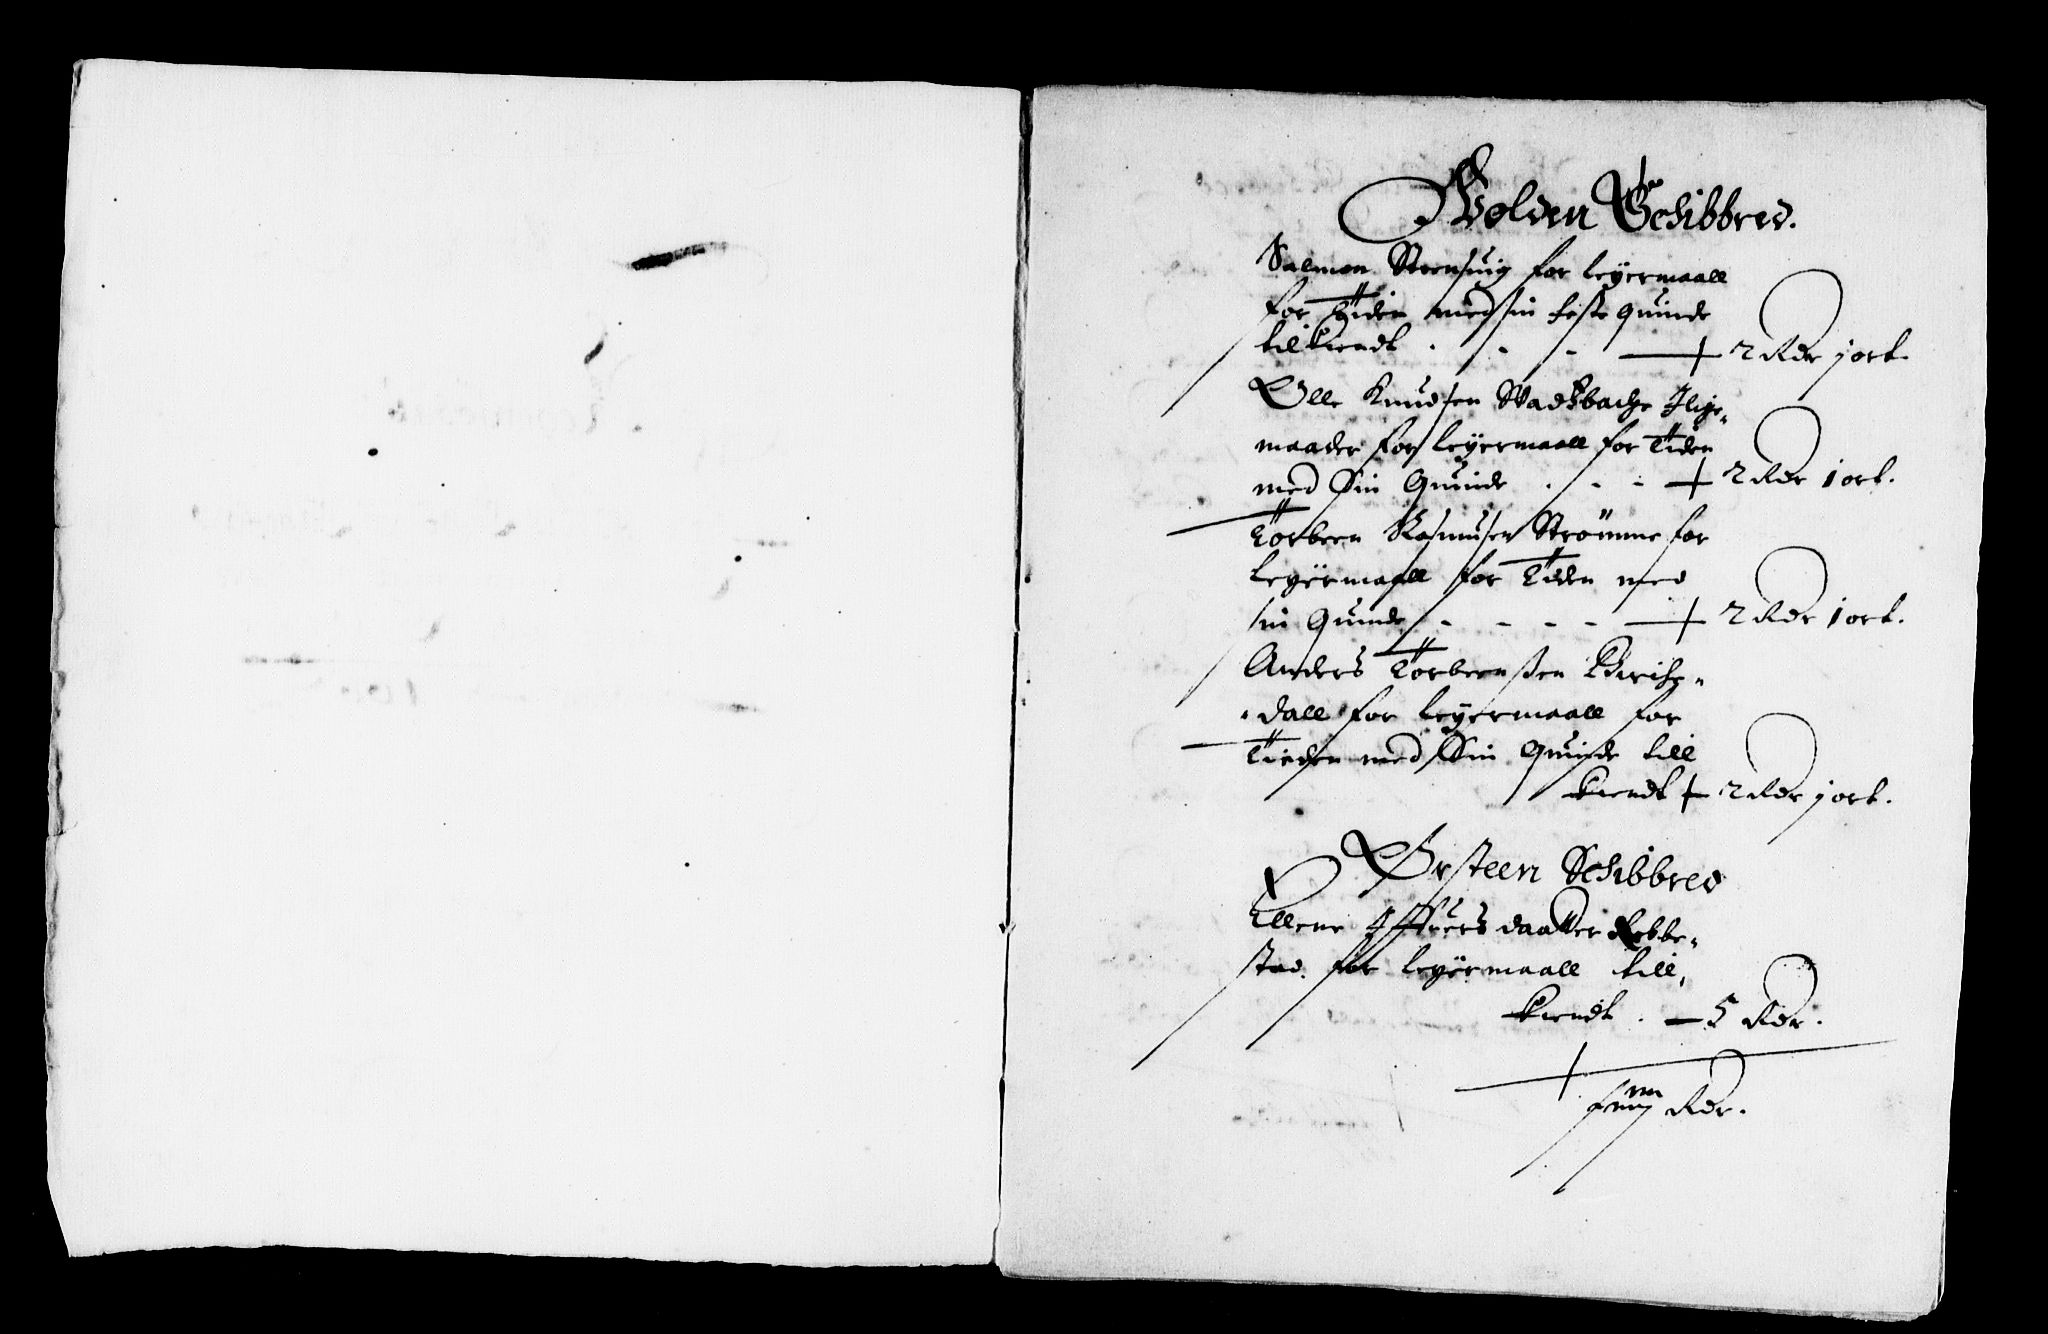 Wolden Schibbred.
Salmon Steensuig for leyermaall
for Tiden med sin feste quinde
tilkiendt . . - - 2 Rdr 1 ort.
Olle Knudsen Wadsbache Ilige¬
maader for leyermaall for Tiden
med Sin Quinde . - - 2 Rdr 1 ort.
Torbeen Rasmusen Strømme for
leyermaall for Tiden med
sin Quinde - - - - 2 Rdr 1 ort.
Anders Torbeensßen
dall for leyermaall for
Tieden med Sin Quinde till
kiendt 2 Rdr 1 ort.
Ørsteen Schibbred
Ellene Iffuers daatter Robbe¬
stad for leyermaall till,
kiendt . - 5 Rdr.
Rdr.